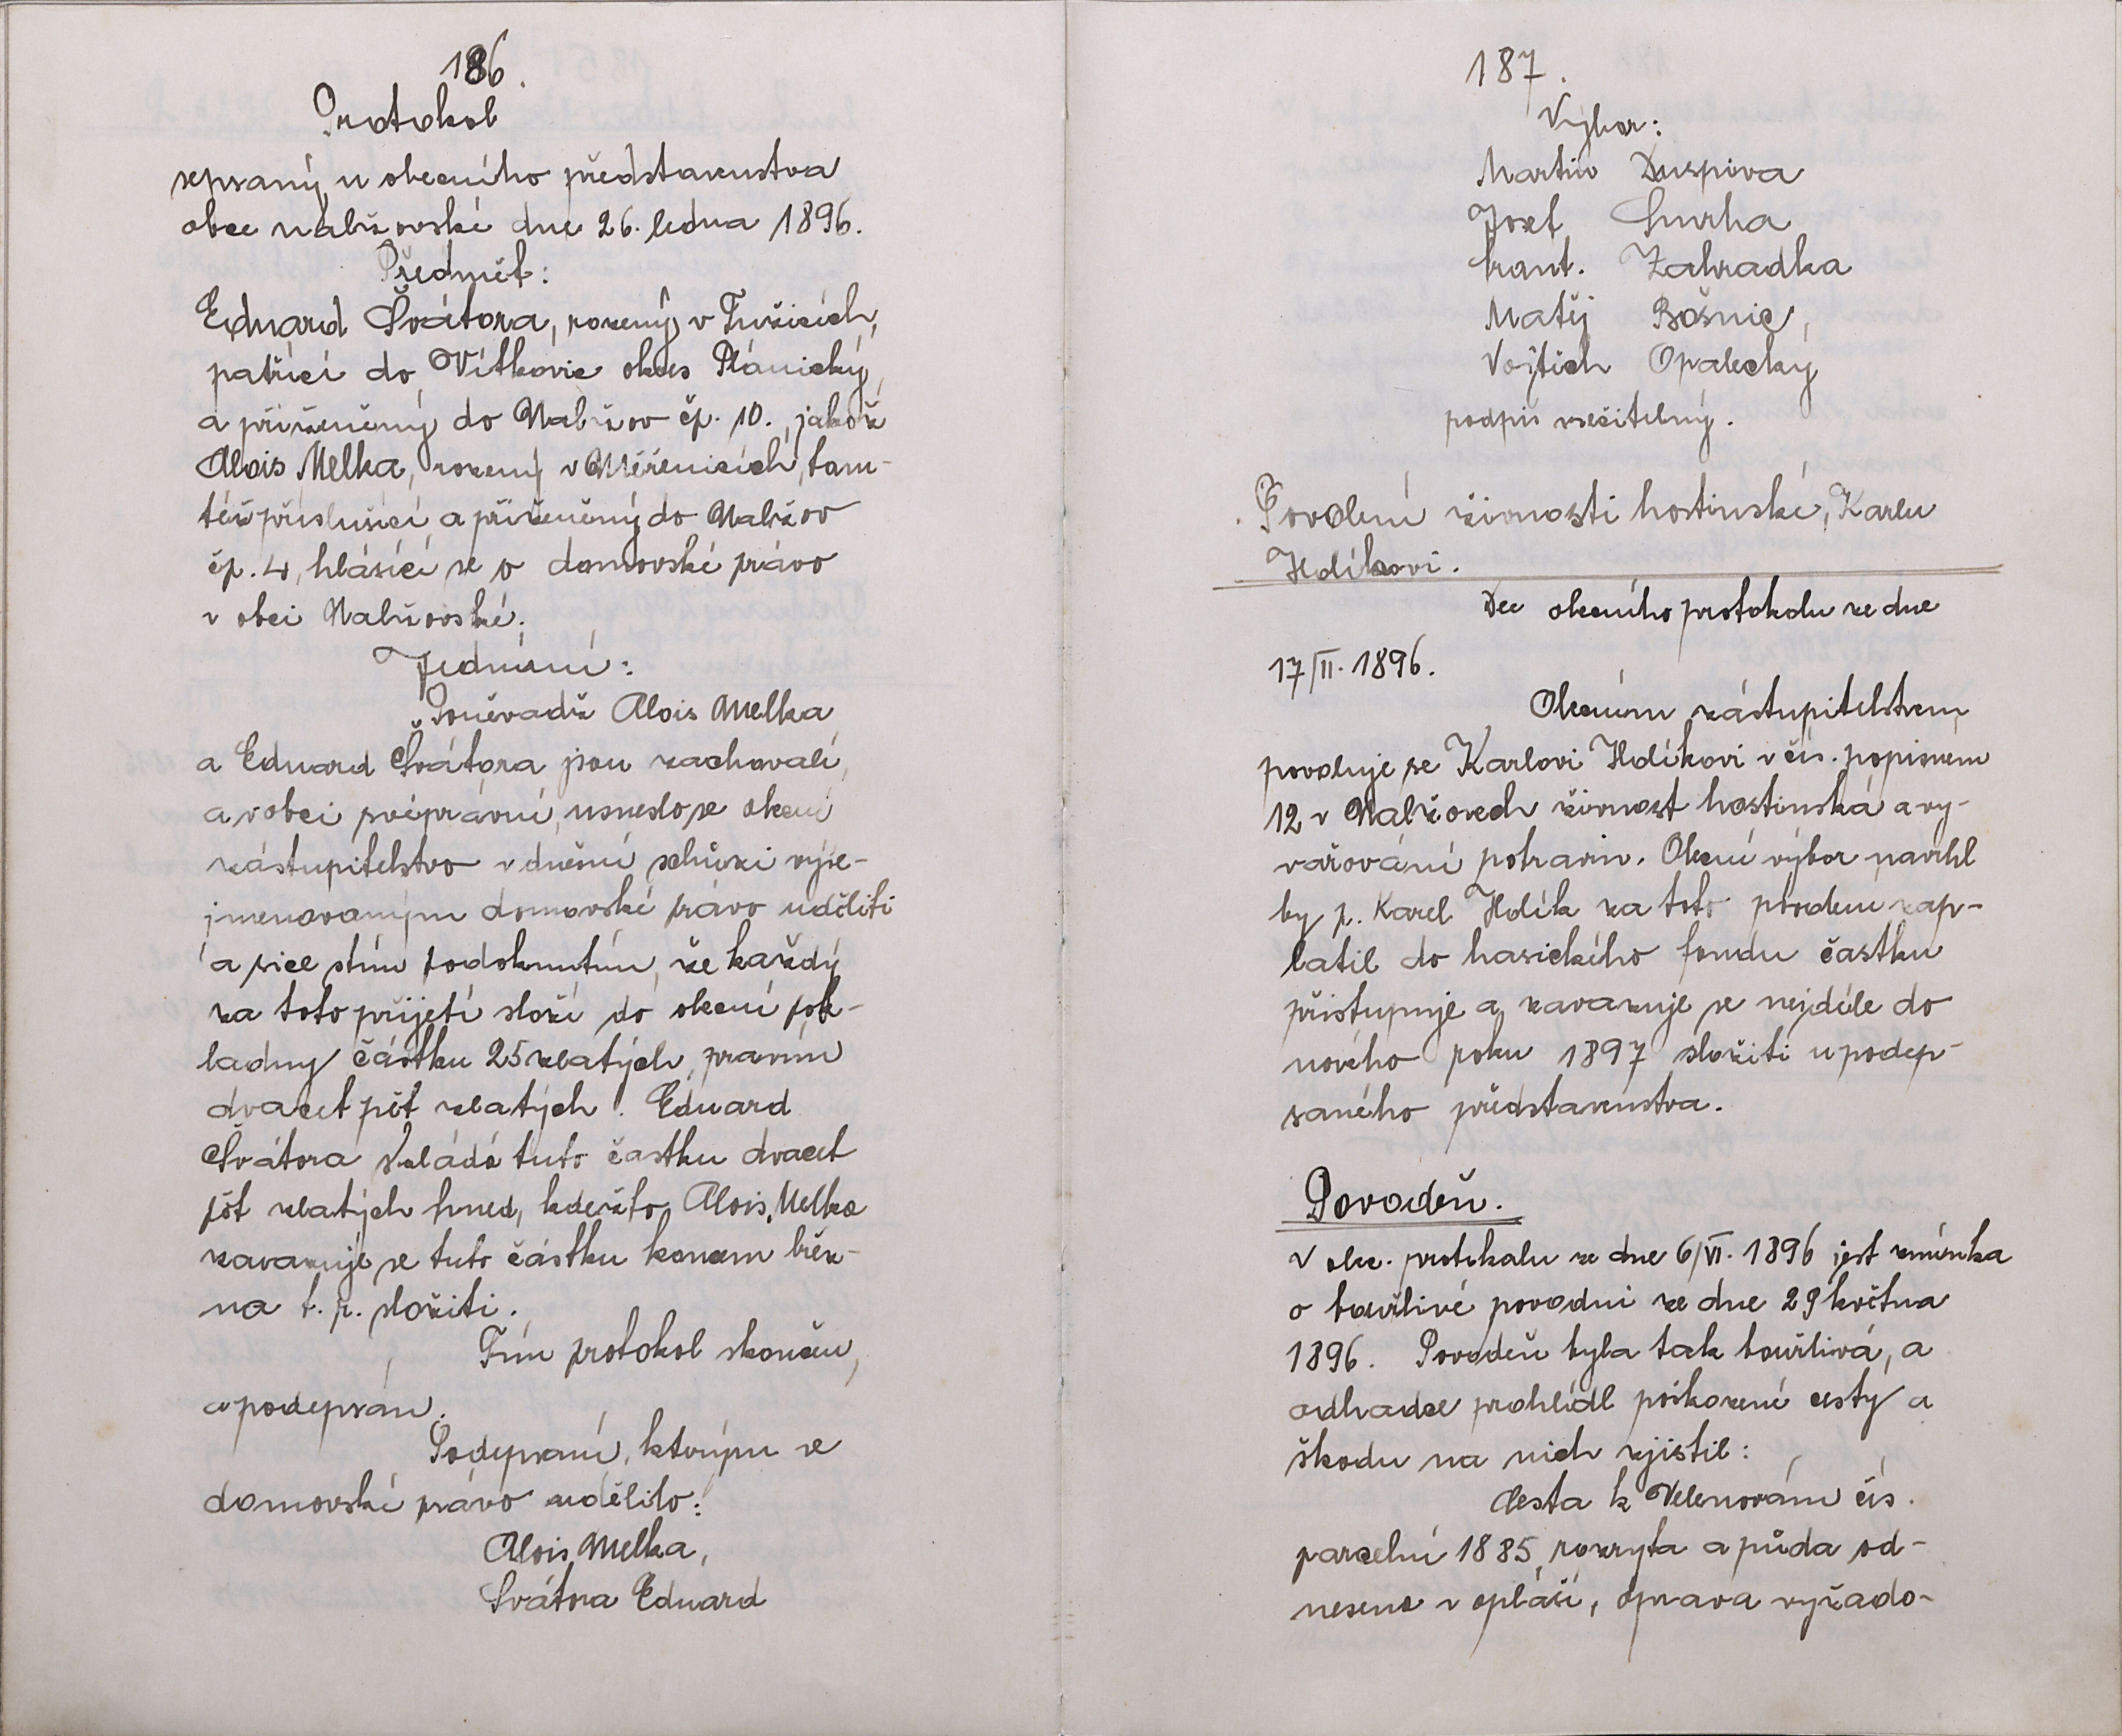 186.
Protokol
sepsaný u obecního představenstva
obce nalžovské dne 26. ledna 1896.
Předmět:
Eduard Švátora, rozený v Tužicích,
patřící do Vítkovic okres Plánický,
a přiženěný do Nalžov čp. 10., jakož
Alois Melka, rozený v Měřenicích, tam-
též příslušící a přiženěný do Nalžov
čp. 4, hlásící se o domovské právo
v obci Nalžovské.
Jednání:
Poněvadž Alois Melka
a Eduard Švátora jsou zachovalí,
a v obci svéprávní, usneslo se obecní
zástupitelstvo v dnešní schůzi výše-
jmenovaným domovské právo uděliti
a sice stím podotknutím, že každý
za toto přijetí složí do obecní pok-
ladny částku 25 zlatých, pravím
dvacet pět zlatých. Eduard
Švátora skládá tuto častku dvacet
pět zlatých hned, kdežto Alois Melka
zavazuje se tuto částku koncem břez-
na t. r. složiti.
Tím protokol skončen,
a podepsán.
Podepsaní, kterým se
domovské právo udělilo:
Alois Melka,
Svátora Eduard
187.
Výbor:
Martin Duspiva
Josef Smrha
frant. Zahradka
Matěj Bošnic,
Vojtěch Opalecký
podpis nečitelný.
Povolení živnosti hostinské, Karlu
Hdíkovi.
Dle obecního protokolu ze dne
17/II. 1896.
Obecním zástupitelstvem
povoluje se Karlovi Hdíkovi v čís. popisném
12 v Nalžovech živnost hostinská a vy-
vařování potravin. Obecní výbor navrhl
by p. Karel Hdík za toto povolení zap-
latil do hasičkého fondu častku
přistupuje a zavazuje se nejdéle do
nového roku 1897 složiti u podep-
saného představenstva.
Povodeň.
V obec. protokolu ze dne 6/VI. 1896 jest zmínka
o bouřlivé povodni ze dne 29 května
1896. Povodeň byla tak bouřlivá, a
odhadce prohlídl poškozené cesty a
škodu na nich zjistil:
Cesta k Velenovám čís.
parcelní 1885, rozryta a půda od-
nesena v opláší, oprava vyžado-